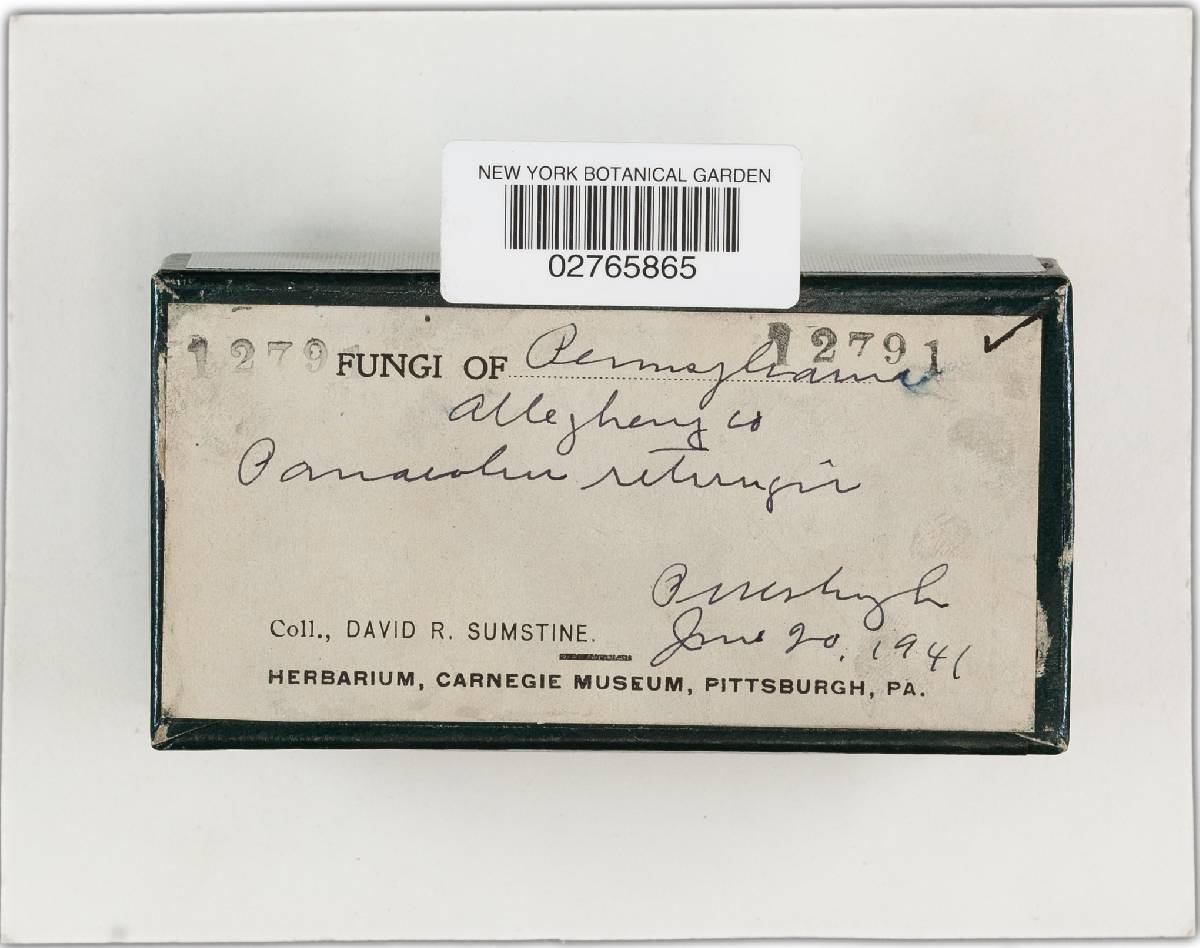 NEW YORK BOTANICAL GARDEN
02765865
12791 12791
FUNGI OF Pennsylvania
Allegheny co
Panaeolus retirugis
Pittsburgh
Coll., DAVID R. SUMSTINE. June 20, 1941
HERBARIUM, CARNEGIE MUSEUM, PITTSBURGH, PA.